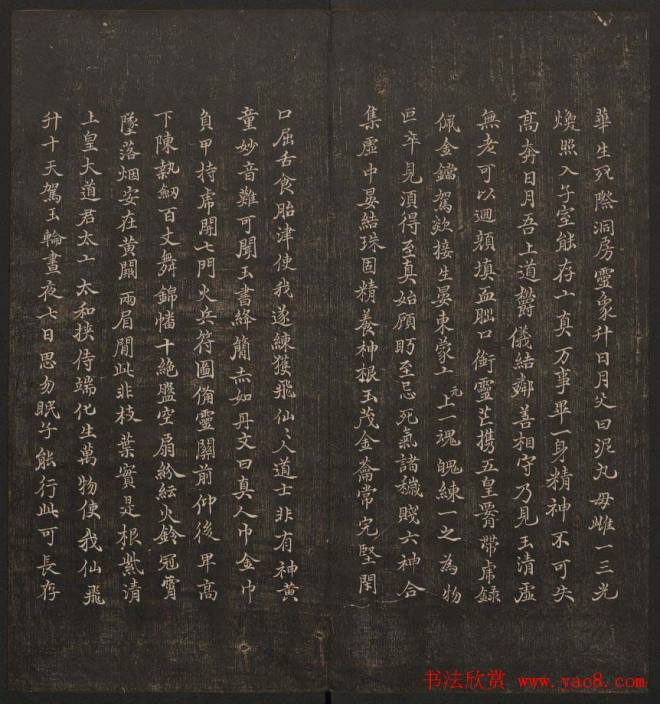 華生死際洞房靈象升日月父曰泥丸母雌一三光
煥照入子室能存玄真万事畢一身精神不可失
高奔日月吾上道鬱儀結鄰善相守乃見玉清虛
無老可以迴顏填血腦口銜靈芒携五皇腎帶虎錄
佩金鐺駕欻接生晏東蒙玄元上一魂魄練一之為物
叵卒見須得至真始顧眄至忌死氣諸穢賤六神合
集虛中晏結珠固精養神根玉茂金籥常完堅閉
口屈舌食胎津使我遂練獲飛仙〻人道士非有神黃
童妙音難可聞玉書絳簡赤如丹文曰真人巾金巾
負甲持虎開七門火兵符圖備靈關前仰後卑高
下陳執劒百丈舞錦幡十絕盤空扇紛紜火鈴冠霄
墜落烟安在黃闕兩眉間此非枝葉實是根紫清
上皇大道君太玄太和挾侍端化生萬物使我仙飛
升十天駕玉輪晝夜七日思勿眠子能行此可長存
书法欣赏 www.yac8.com